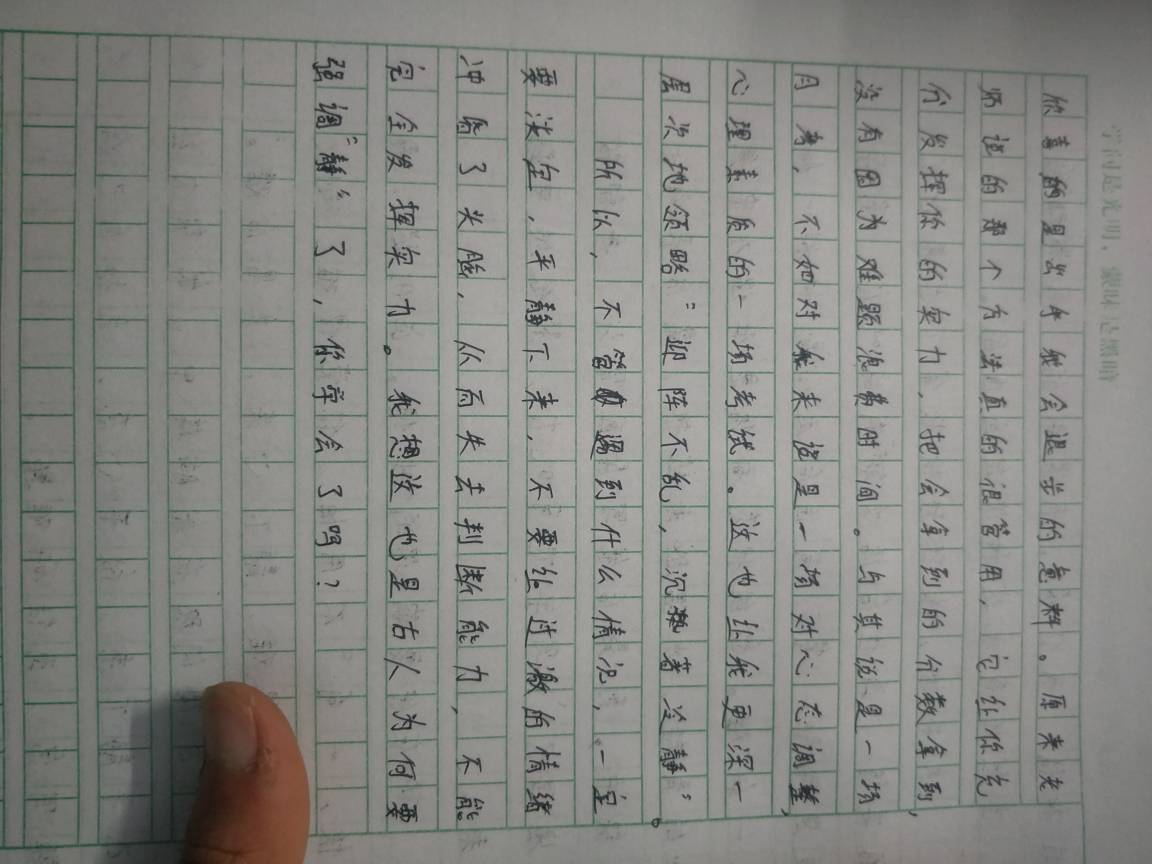 学问是光明，蒙昧是黑暗
欣喜的是出乎我会退步的意料。原来老
师说的那个方法真的很管用，它让你充
分发挥你的实力，把会拿到的分数拿到，
没有因为难题浪费时间。与其说是一场
月考，不如对我来说是一场对心态调整，
心理素质的一场考试。这也让我更深一
层次地领略“迎阵不乱，沉着冷静”。
所以，不管遇到什么情况，一定
要淡定，平静下来，不要让过激的情绪
冲昏了头脑，从而失去判断能力，不能
完全发挥实力。我想这也是古人为何要
强调“静”了，你学会了吗？